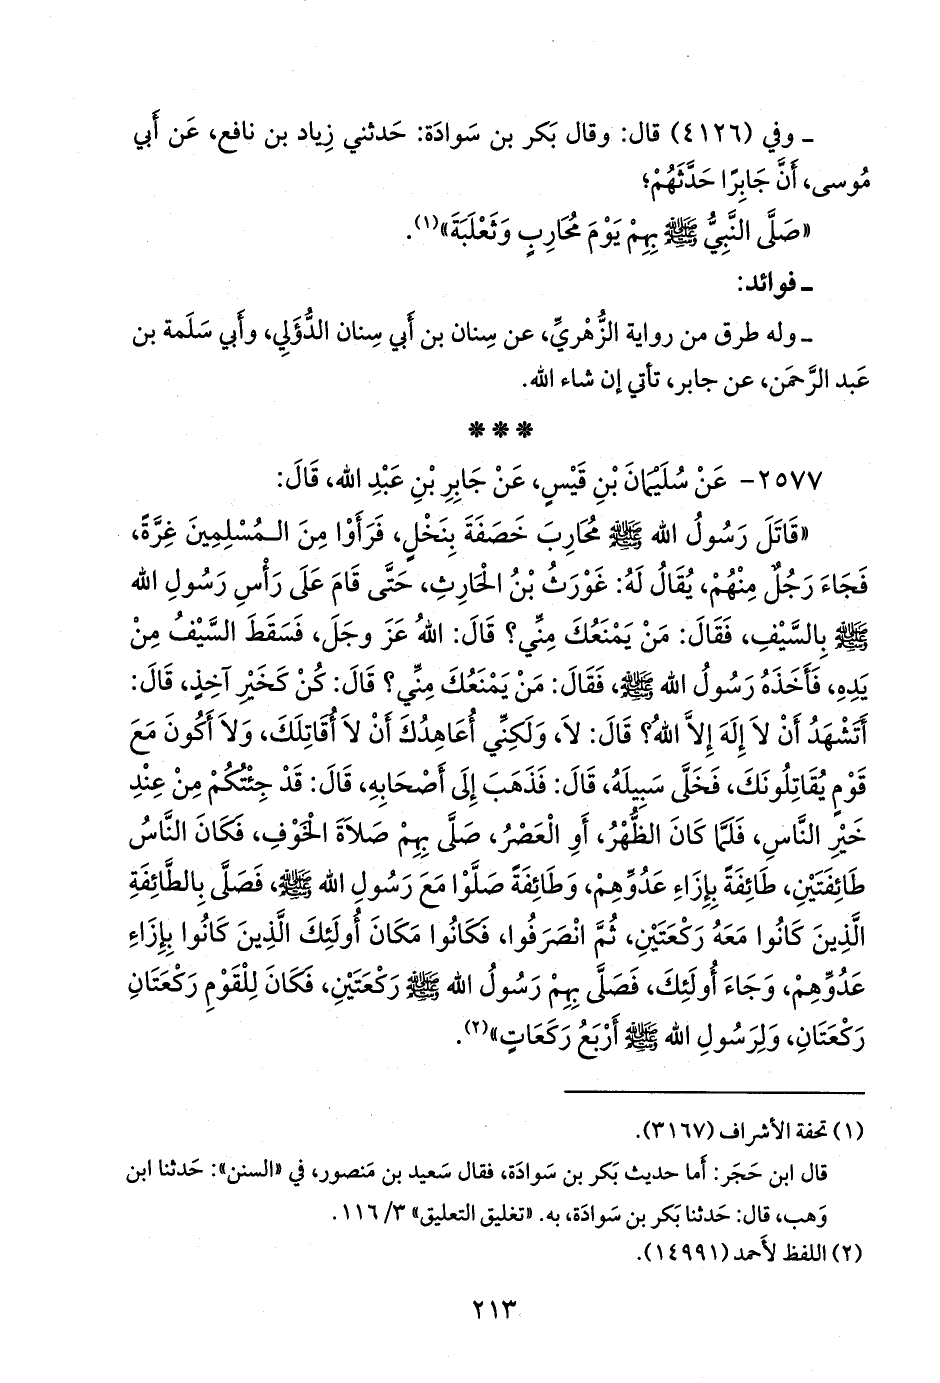 ـ وفي (٤١٢٦) قال: وقال بَكر بن سَوادَة: حَدثني زِياد بن نافع، عَن أَبي
مُوسى، أَنَّ جَابِرًا حَدَّثَهُمْ؛
«صَلَّى النَّبِيُّ ﷺ بِهِمْ يَوْمَ مُحَارِبٍ وَثَعْلَبَةَ»(١).
ـ فوائد:
ـ وله طرق من رواية الزُّهْريِّ، عن سِنان بن أَبي سِنان الدُّؤَلي، وأَبي سَلَمة بن
عَبد الرَّحمَن، عن جابر، تأتي إن شاء الله.
***
٢٥٧٧- عَنْ سُلَيْمَانَ بْنِ قَيْسٍ، عَنْ جَابِرِ بْنِ عَبْدِ الله، قَالَ:
«قَاتَلَ رَسُولُ الله ﷺ مُحَارِبَ خَصَفَةَ بِنَخْلٍ، فَرَأَوْا مِنَ الْمُسْلِمِينَ غِرَّةً،
فَجَاءَ رَجُلٌ مِنْهُمْ، يُقَالُ لَهُ: غَوْرَثُ بْنُ الْحَارِثِ، حَتَّى قَامَ عَلَى رَأْسِ رَسُولِ الله
ﷺ بِالسَّيْفِ، فَقَالَ: مَنْ يَمْنَعُكَ مِنِّي؟ قَالَ: اللهُ عَزَّ وجَلَّ، فَسَقَطَ السَّيْفُ مِنْ
يَدِهِ، فَأَخَذَهُ رَسُولُ الله ﷺ، فَقَالَ: مَنْ يَمْنَعُكَ مِنِّي؟ قَالَ: كُنْ كَخَيْرِ آخِذٍ، قَالَ:
أَتَشْهَدُ أَنْ لاَ إِلَهَ إِلاَّ اللهُ؟ قَالَ: لاَ، وَلَكِنِّي أُعَاهِدُكَ أَنْ لاَ أُقَاتِلَكَ، وَلاَ أَكُونَ مَعَ
قَوْمٍ يُقَاتِلُونَكَ، فَخَلَّى سَبِيلَهُ، قَالَ: فَذَهَبَ إِلَى أَصْحَابِهِ، قَالَ: قَدْ جِئْتُكُمْ مِنْ عِنْدِ
خَيْرِ النَّاسِ، فَلَمَّا كَانَ الظُّهْرُ، أَوِ الْعَصْرُ، صَلَّى بِهِمْ صَلاَةَ الْخَوْفِ، فَكَانَ النَّاسُ
طَائِفَتَيْنِ، طَائِفَةً بِإِزَاءِ عَدُوِّهِمْ، وَطَائِفَةً صَلَّوْا مَعَ رَسُولِ الله ﷺ، فَصَلَّى بِالطَّائِفَةِ
الَّذِينَ كَانُوا مَعَهُ رَكْعَتَيْنِ، ثُمَّ انْصَرَفُوا، فَكَانُوا مَكَانَ أُولَئِكَ الَّذِينَ كَانُوا بِإِزَاءِ
عَدُوِّهِمْ، وَجَاءَ أُولَئِكَ، فَصَلَّى بِهِمْ رَسُولُ الله ﷺ رَكْعَتَيْنِ، فَكَانَ لِلْقَوْمِ رَكْعَتَانِ
رَكْعَتَانِ، وَلِرَسُولِ الله ﷺ أَرْبَعُ رَكَعَاتٍ»(٢).
(١) تحفة الأشراف (٣١٦٧).
قال ابن حَجَر: أَما حديث بَكر بن سَوادَة، فقال سَعيد بن مَنصور، في «السنن»: حَدثنا ابن
وَهب، قال: حَدثنا بَكر بن سَوادَة، به. «تغليق التعليق» ٣/ ١١٦.
(٢) اللفظ لأَحمد (١٤٩٩١).
٢١٣